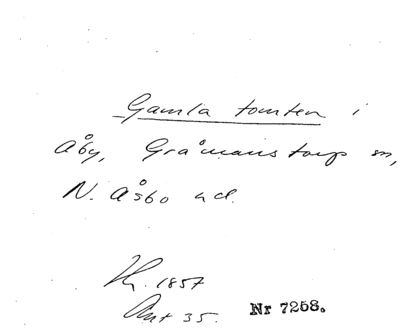 Gamla tomten i
Åby, Gråmanstorp sn,
N. Åsbo hd.
1857
Ant 35. Nr 7258.